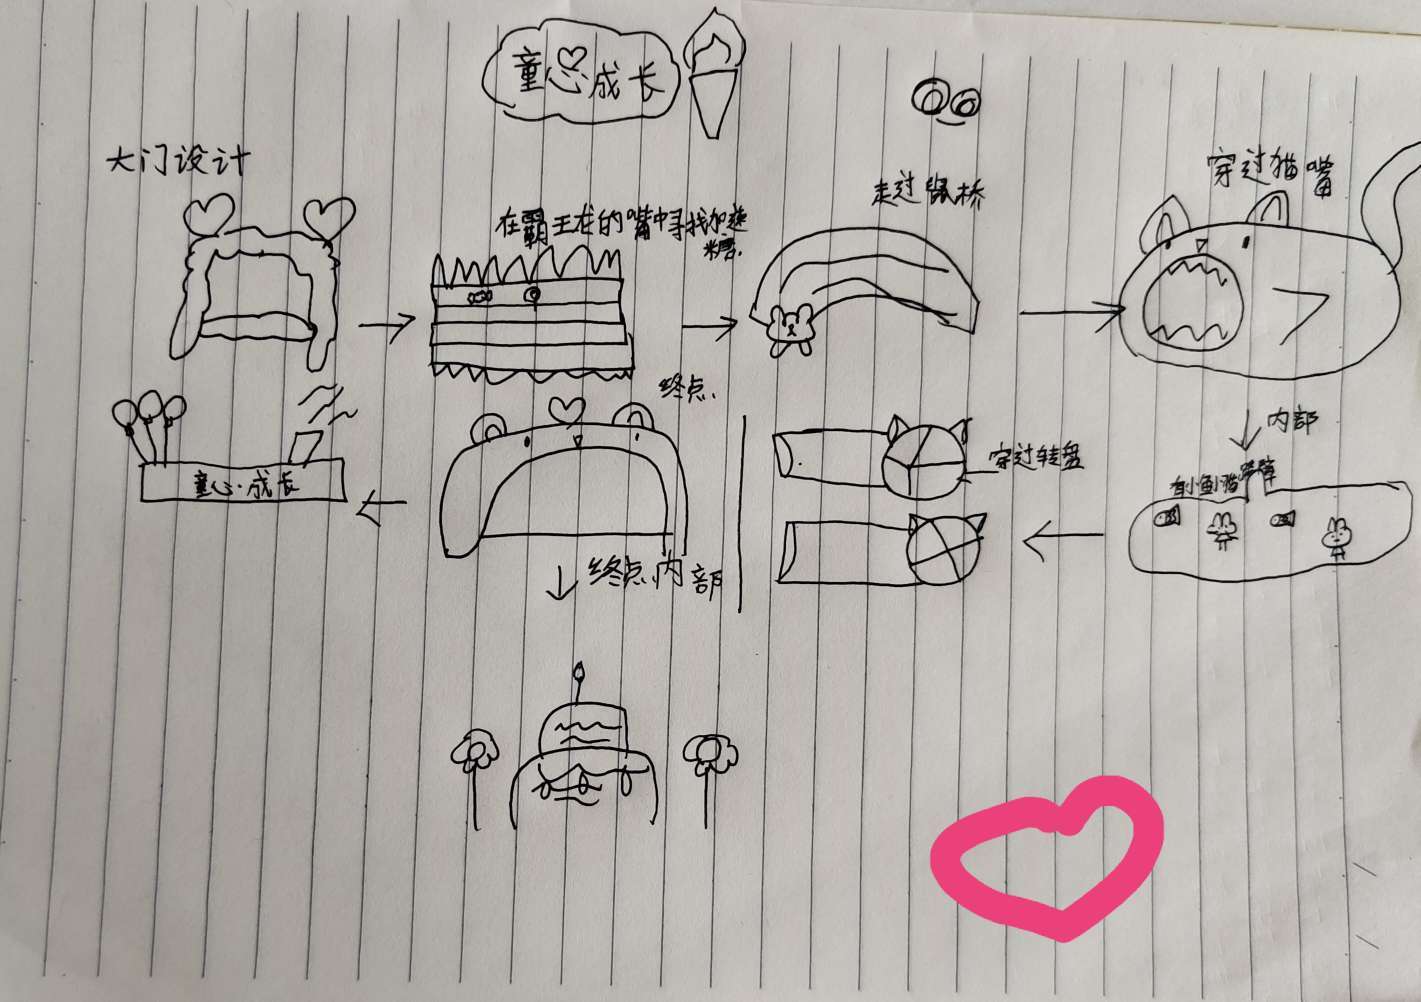 童心成长
大门设计
在霸王龙的嘴中寻找加速
糖.
走过鼠桥
穿过猫嘴
内部
有小鱼小猫障
穿过转盘
终点.
童心·成长
终点内部